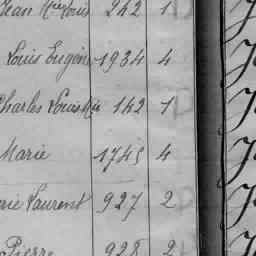 Jean Mie Louis 242 1
Louis Eugène 1934 4
Charles Louis Mie 142 1
Marie 1745 4
rie Laurent 927 2
Pierre 928 2